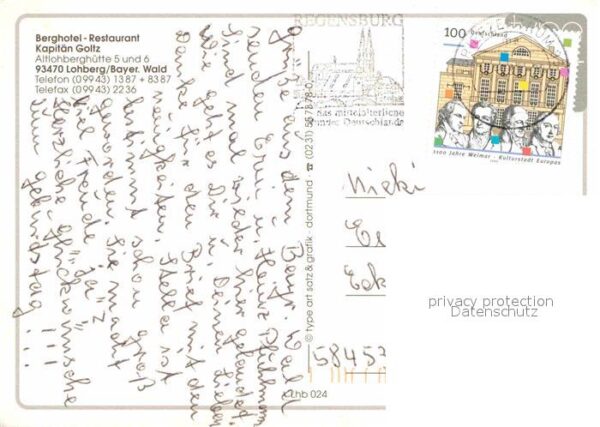 Berghotel - Restaurant
Kapitän Goltz
Altlohberghütte 5 und 6
93470 Lohberg/Bayer. Wald
Telefon (0 99 43) 13 87 + 83 87
Telefax (0 99 43) 22 36
REGENSBURG
das mittelalterliche
Wunder Deutschlands
100 Deutschland
1100 Jahre Weimar - Kulturstadt Europas
Grüße aus dem Bayr. Wald
senden Erni u. Heinz
Sind mal wieder hier gelandet
Wie geht es Dir u. Deiner lieben
Danke für den Brief mit den
neuigkeiten. Stella ist
bestimmt schon groß
geworden. Sie macht
viel Freude ja?
Herzliche glückwünsche
zum geburtstag!!!
© type art satz & grafik · dortmund ☎ (0231)
58452
Lhb 024
privacy protection
Datenschutz